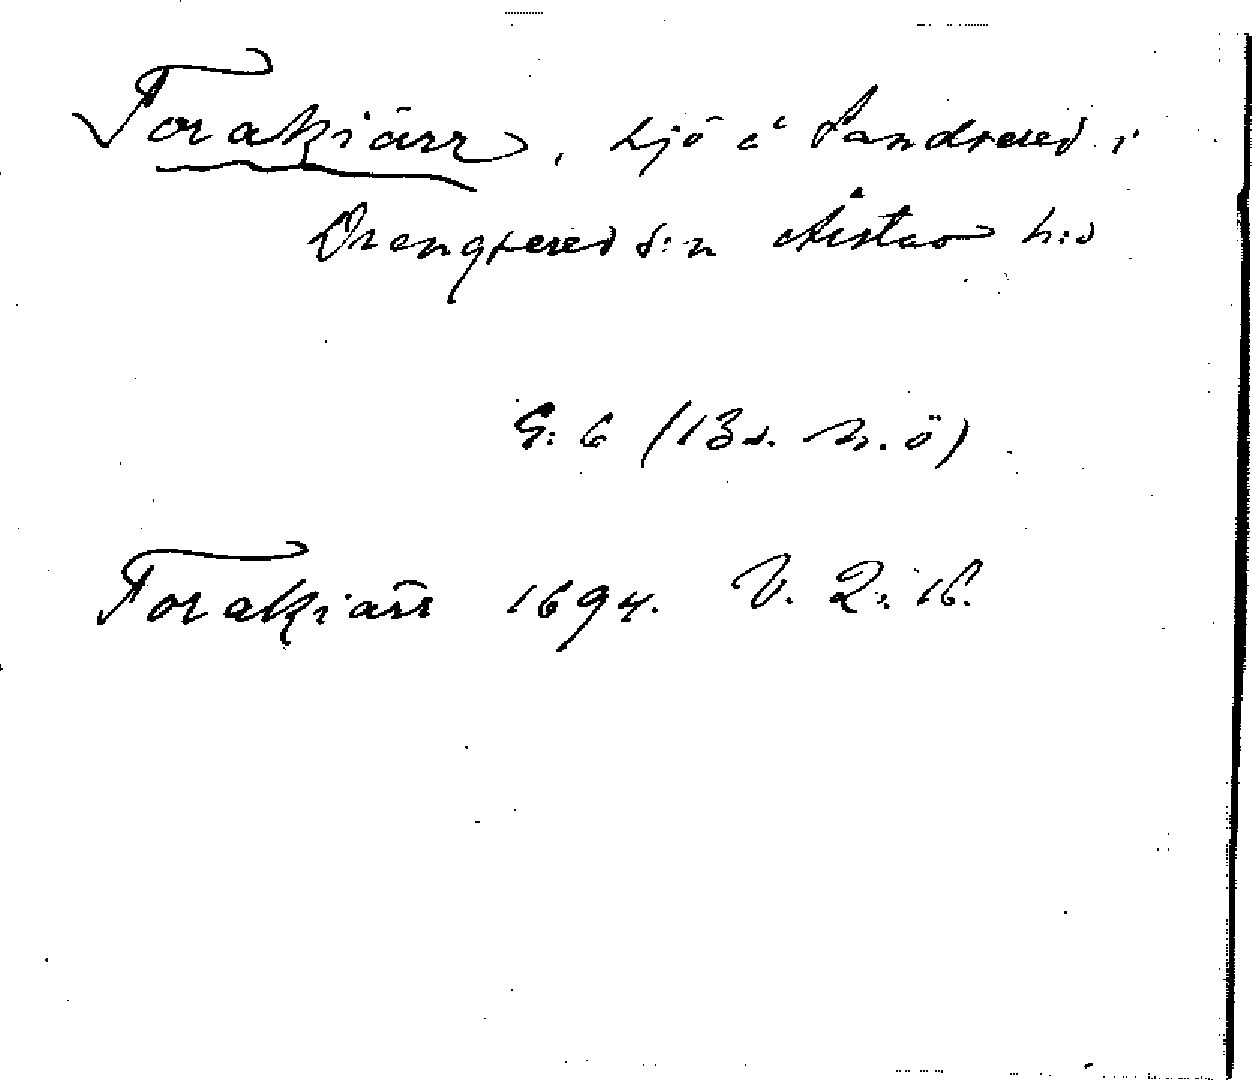 Torakiärr, sjö å Sandrered i
Drängsered s:n Årstad h:d
G: 6 (13 s. n. ö)
Torakiärr 1694. V. 2: 16.